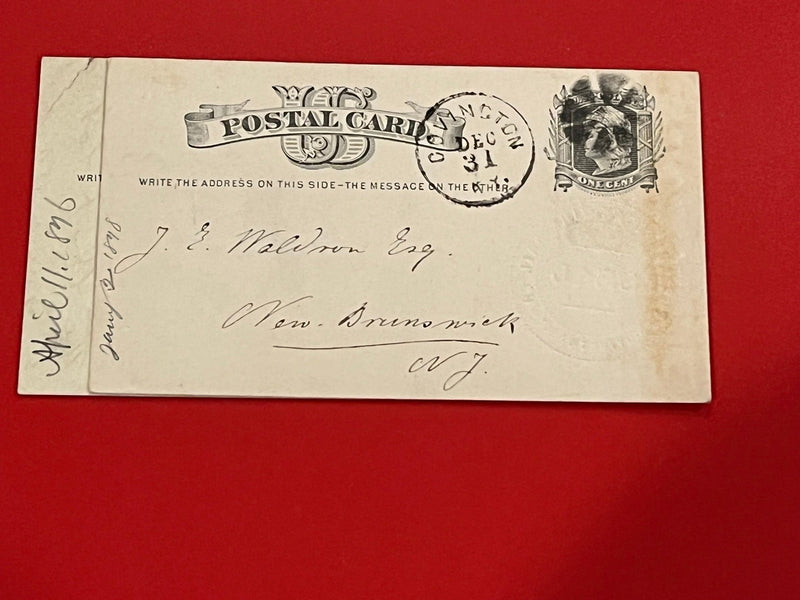 US
POSTAL CARD
COVINGTON
DEC
31
KY.
ONE CENT
WRIT
WRITE THE ADDRESS ON THIS SIDE-THE MESSAGE ON THE OTHER
J. E. Waldron Esq.
New Brunswick
N J.
Jany 2 1878
April 11. 1876